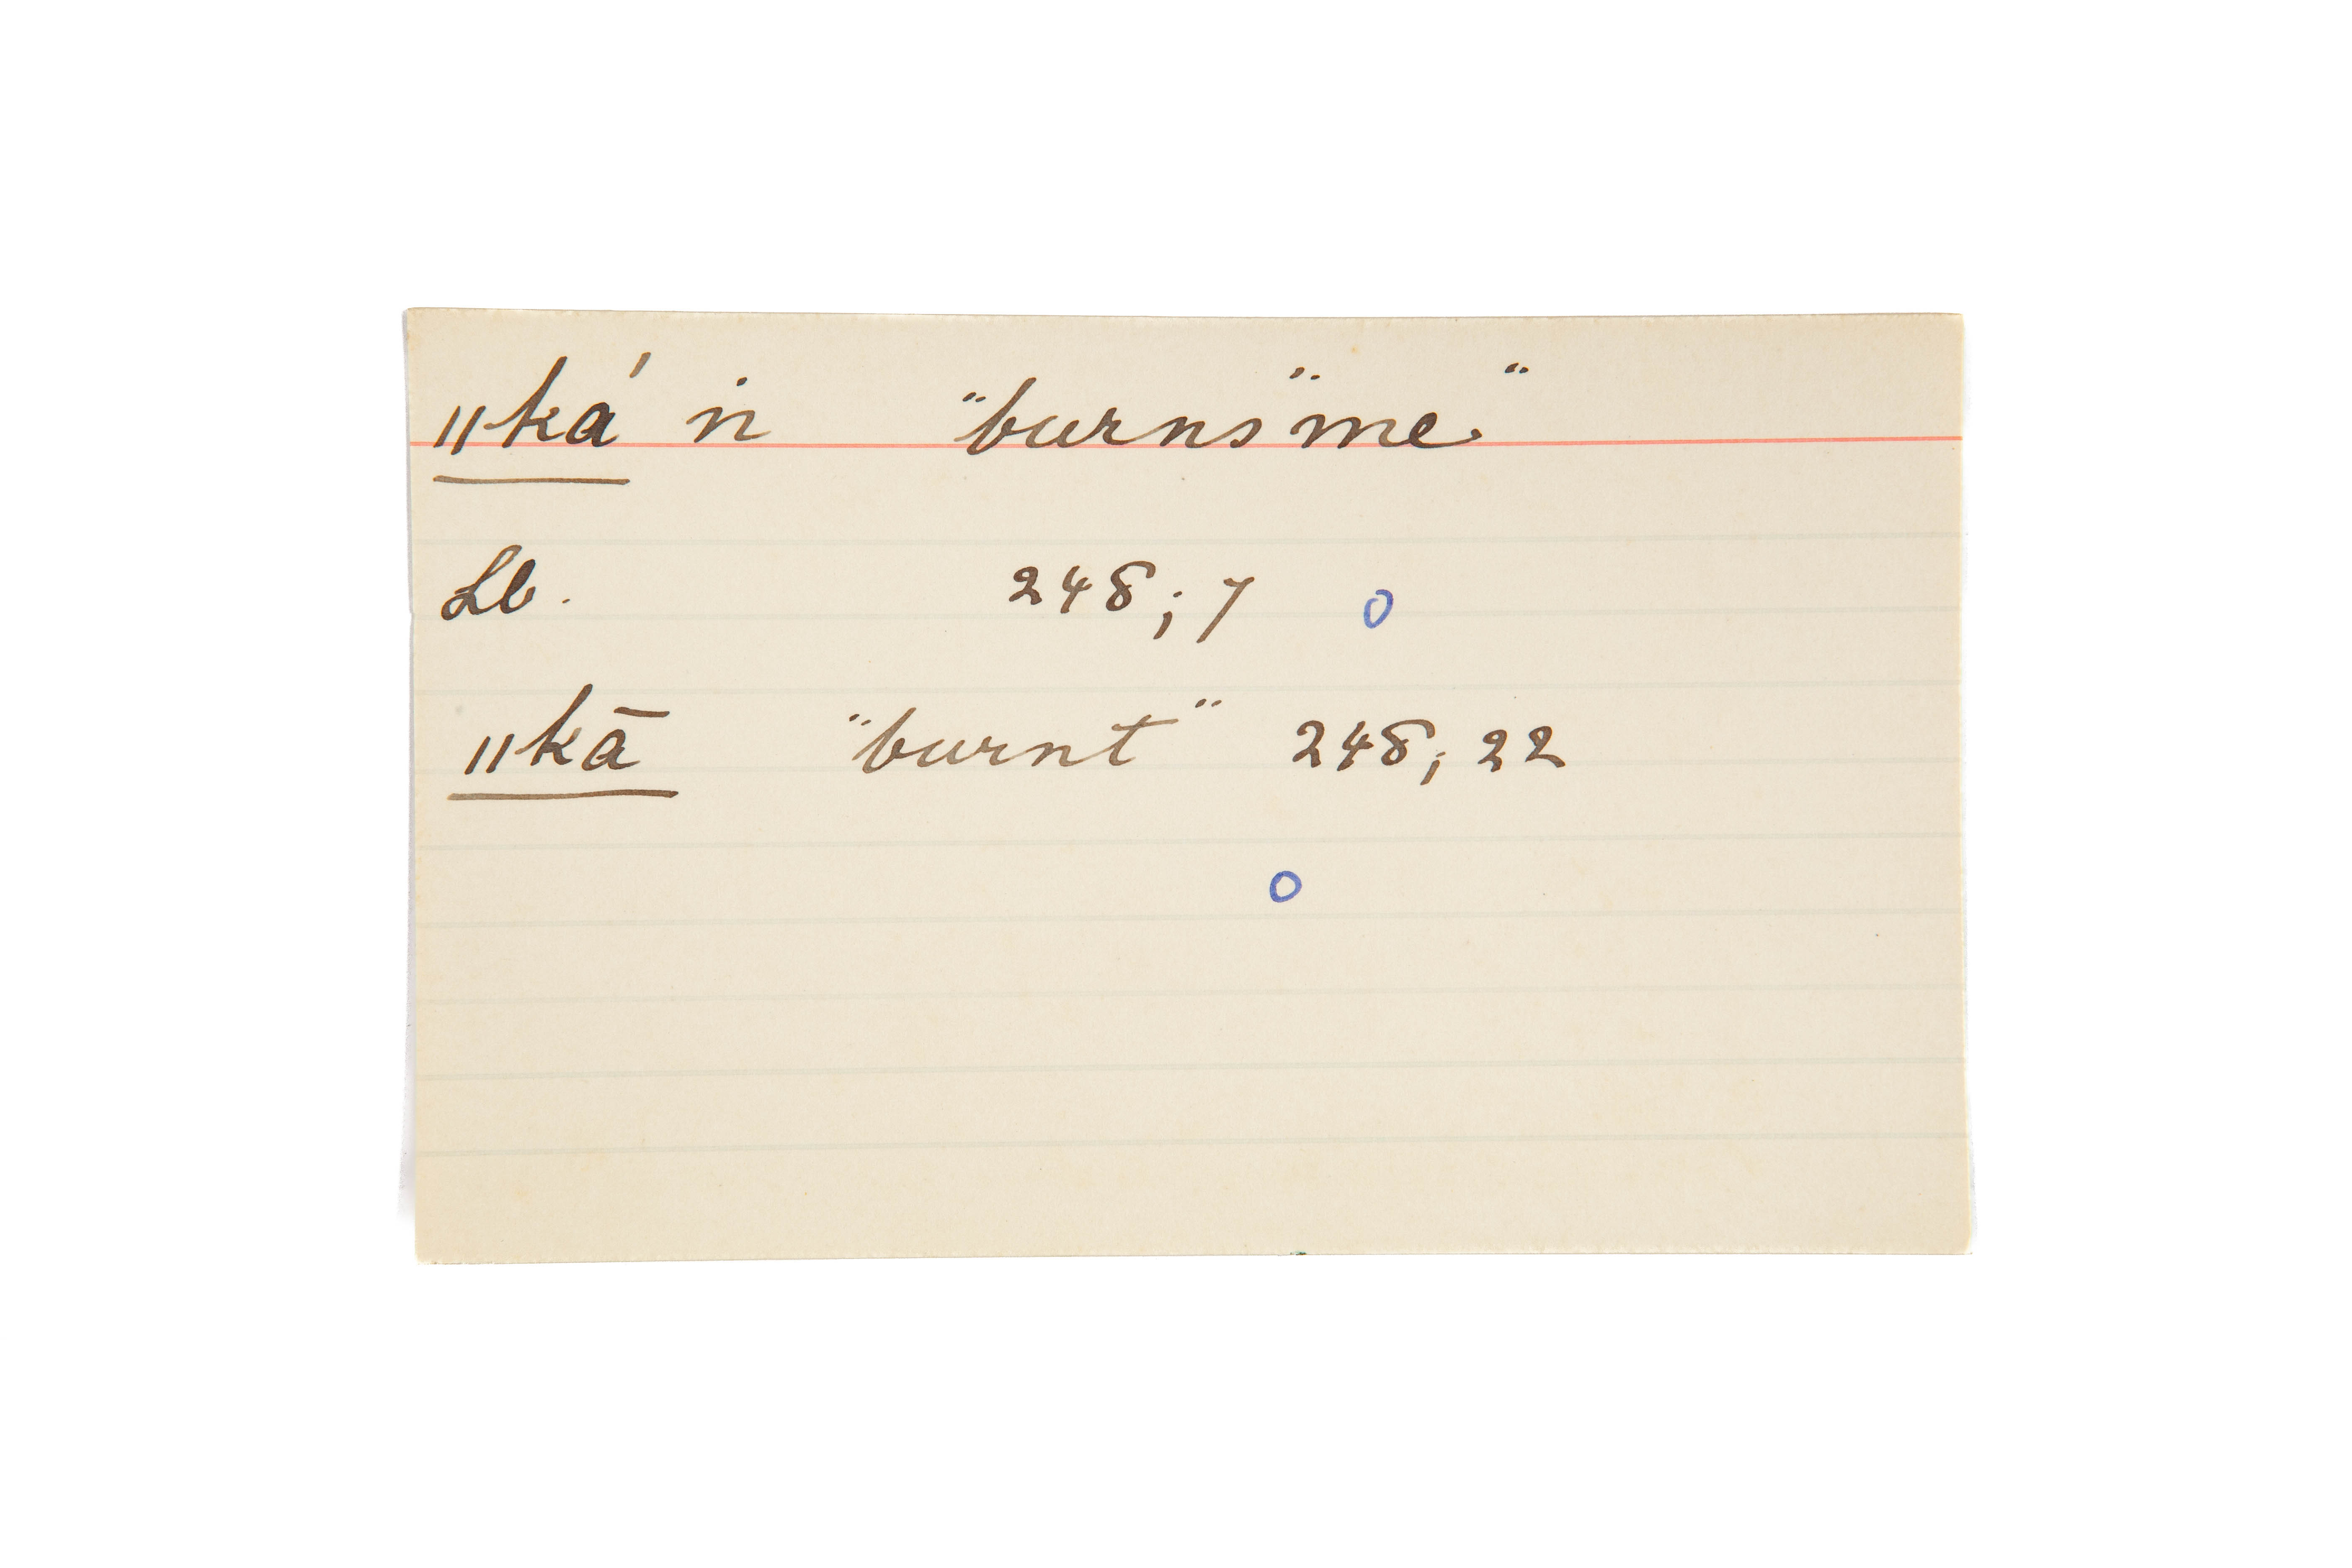 ǁká ṅ "burns" me"
Lb. 248; 7 o
ǁkā "burnt" 248; 22
o